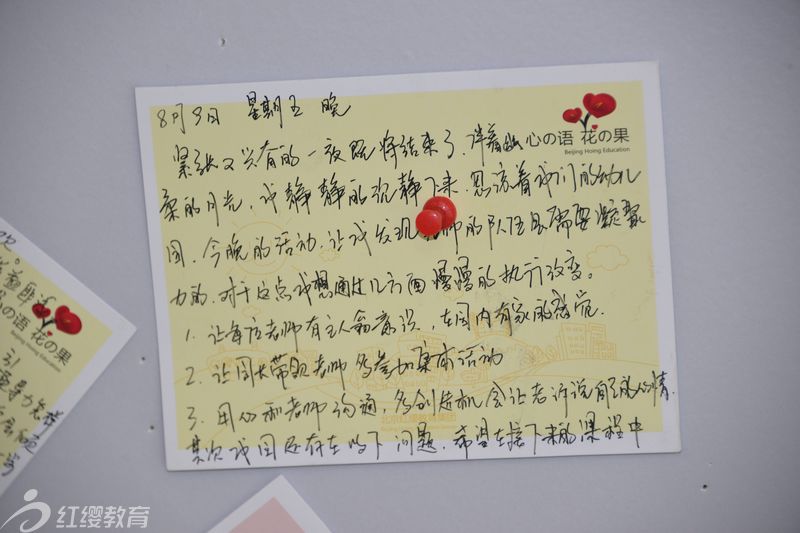 8月9日 星期五 晚
心の语 花の果
Beijing Hoing Education
紧张又兴奋的一夜既将结束了.伴着幽
柔的月光,我静静的沉静下来.思索着我们的幼儿
园.今晚的活动.让我发现 师的队伍是需要凝聚
力的.对于这点我想通过几方面慢慢的执行改变。
1.让每位老师有主人翁意识,在园内有家的感觉.
2.让园长带领老师多参加集体活动
3.用心和老师沟通,多创造机会让老师诉说自己的心情.
其次我园还存在以下问题.希望在接下来的课程中
の语 花の果
Hoing Education
红缨教育